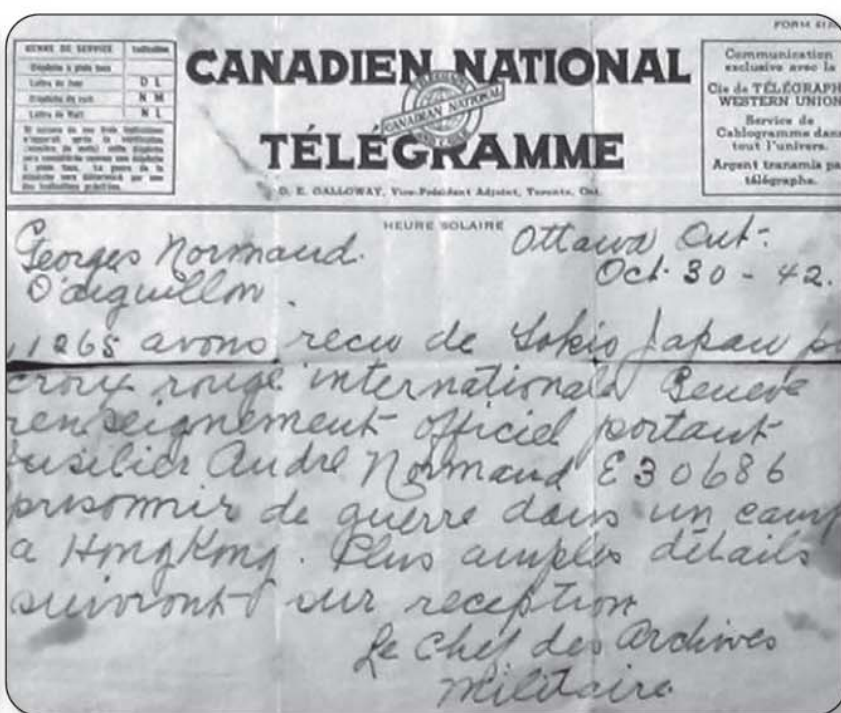 FORM
GENRE DE SERVICE
Indication
Dépêche à plein taux
Lettre de Jour D L
Dépêche de nuit N M
Lettre de Nuit N L
CANADIEN NATIONAL
TÉLÉGRAMME
CANADIAN NATIONAL
D. E. GALLOWAY, Vice-Président Adjoint, Toronto, Ont.
Communication
exclusive avec la
Cie de TÉLÉGRAPH
WESTERN UNION
Service de
Cablogramme dans
tout l'univers.
Argent transmis pa
télégraphe.
HEURE SOLAIRE
Georges Normand.
D'aiguillon.
Ottawa Ont.
Oct. 30 - 42.
11265 avons recu de Tokio Japan p
croix rouge internationale Geneve
renseignement officiel portant
fusilier André Normand E30686
prisonnir de guerre dans un camp
a Hong Kong. Plus amples détails
suivront sur reception
Le Chef des Archives
Militaire